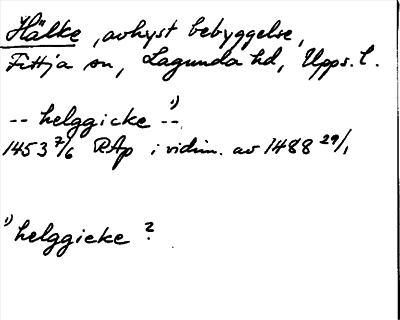 Hälke, avhyst bebyggelse,
Fittja sn, Lagunda hd, Upps. l.
-- helggicke ¹) --
1453 7/6 RAp i vidim. av 1488 29/1
¹) helggieke ?